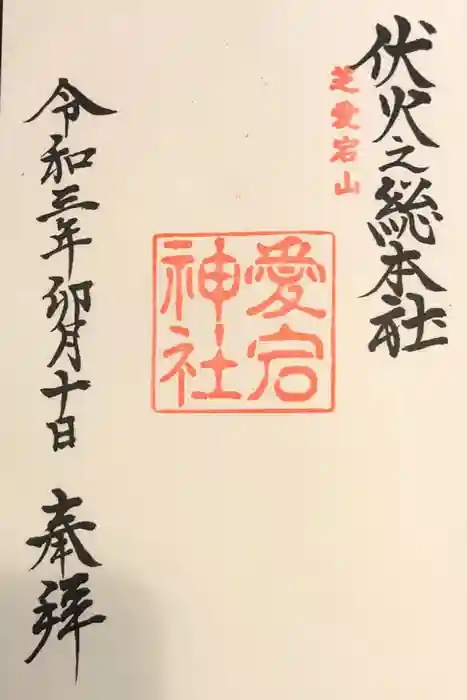 伏火之総本社
芝愛宕山
愛宕
神社
令和三年卯月十日 奉拝